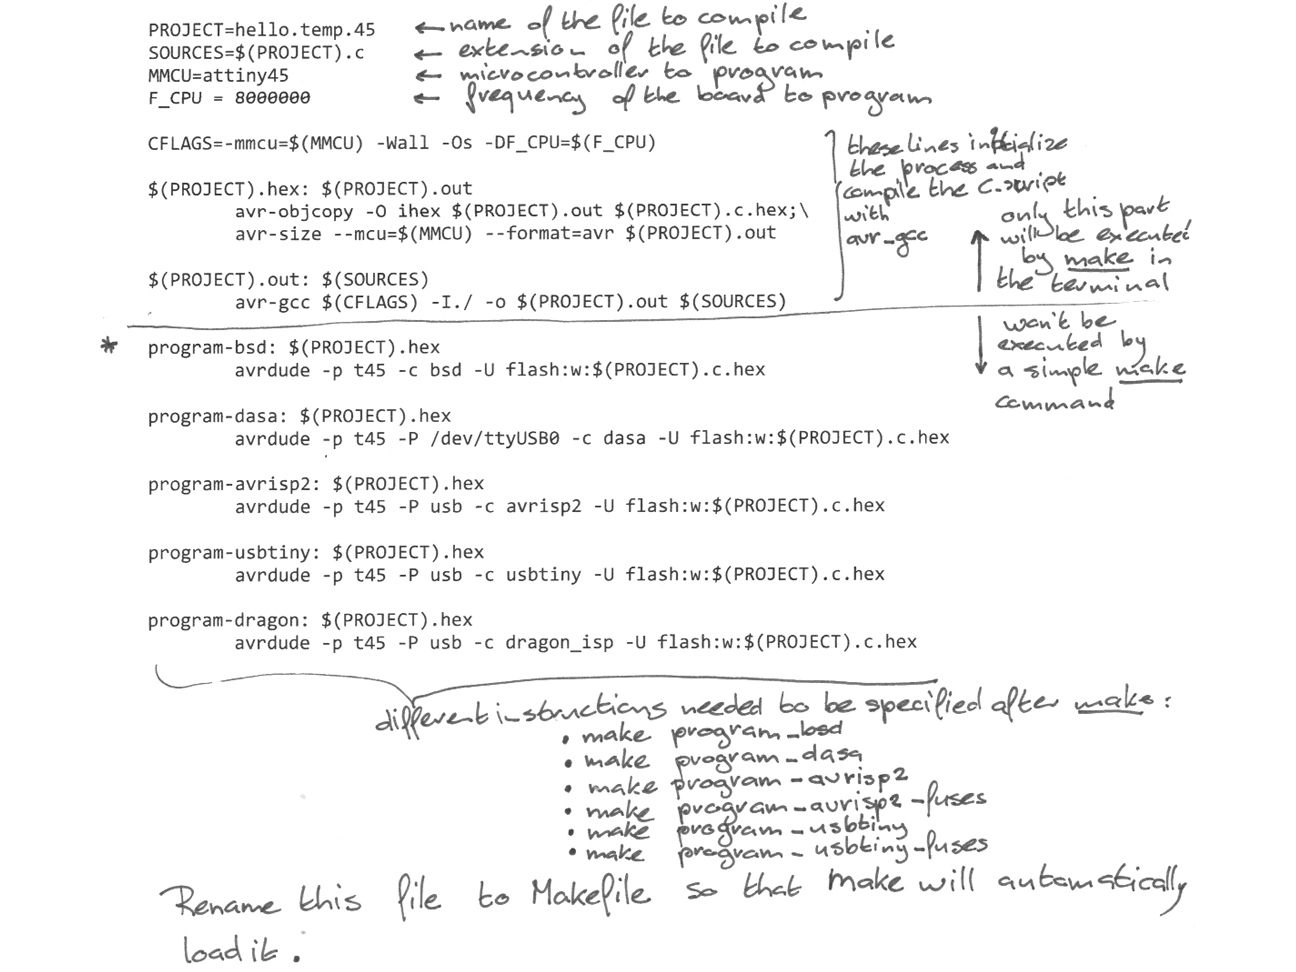 PROJECT=hello.temp.45 ← name of the file to compile
SOURCES=$(PROJECT).c ← extension of the file to compile
MMCU=attiny45 ← microcontroller to program
F_CPU = 8000000 ← frequency of the board to program
CFLAGS=-mmcu=$(MMCU) -Wall -Os -DF_CPU=$(F_CPU)
$(PROJECT).hex: $(PROJECT).out
avr-objcopy -O ihex $(PROJECT).out $(PROJECT).c.hex;\
avr-size --mcu=$(MMCU) --format=avr $(PROJECT).out
$(PROJECT).out: $(SOURCES)
avr-gcc $(CFLAGS) -I./ -o $(PROJECT).out $(SOURCES)
these lines initialize
the process and
compile the C-script
with
avr_gcc
only this part
will be executed
by make in
the terminal
won't be
executed by
a simple make
command
* program-bsd: $(PROJECT).hex
avrdude -p t45 -c bsd -U flash:w:$(PROJECT).c.hex
program-dasa: $(PROJECT).hex
avrdude -p t45 -P /dev/ttyUSB0 -c dasa -U flash:w:$(PROJECT).c.hex
program-avrisp2: $(PROJECT).hex
avrdude -p t45 -P usb -c avrisp2 -U flash:w:$(PROJECT).c.hex
program-usbtiny: $(PROJECT).hex
avrdude -p t45 -P usb -c usbtiny -U flash:w:$(PROJECT).c.hex
program-dragon: $(PROJECT).hex
avrdude -p t45 -P usb -c dragon_isp -U flash:w:$(PROJECT).c.hex
different instructions needed to be specified after make:
• make program_bsd
• make program_dasa
• make program-avrisp2
• make program-avrisp2-fuses
• make program-usbtiny
• make program-usbtiny-fuses
Rename this file to Makefile so that make will automatically
load it.